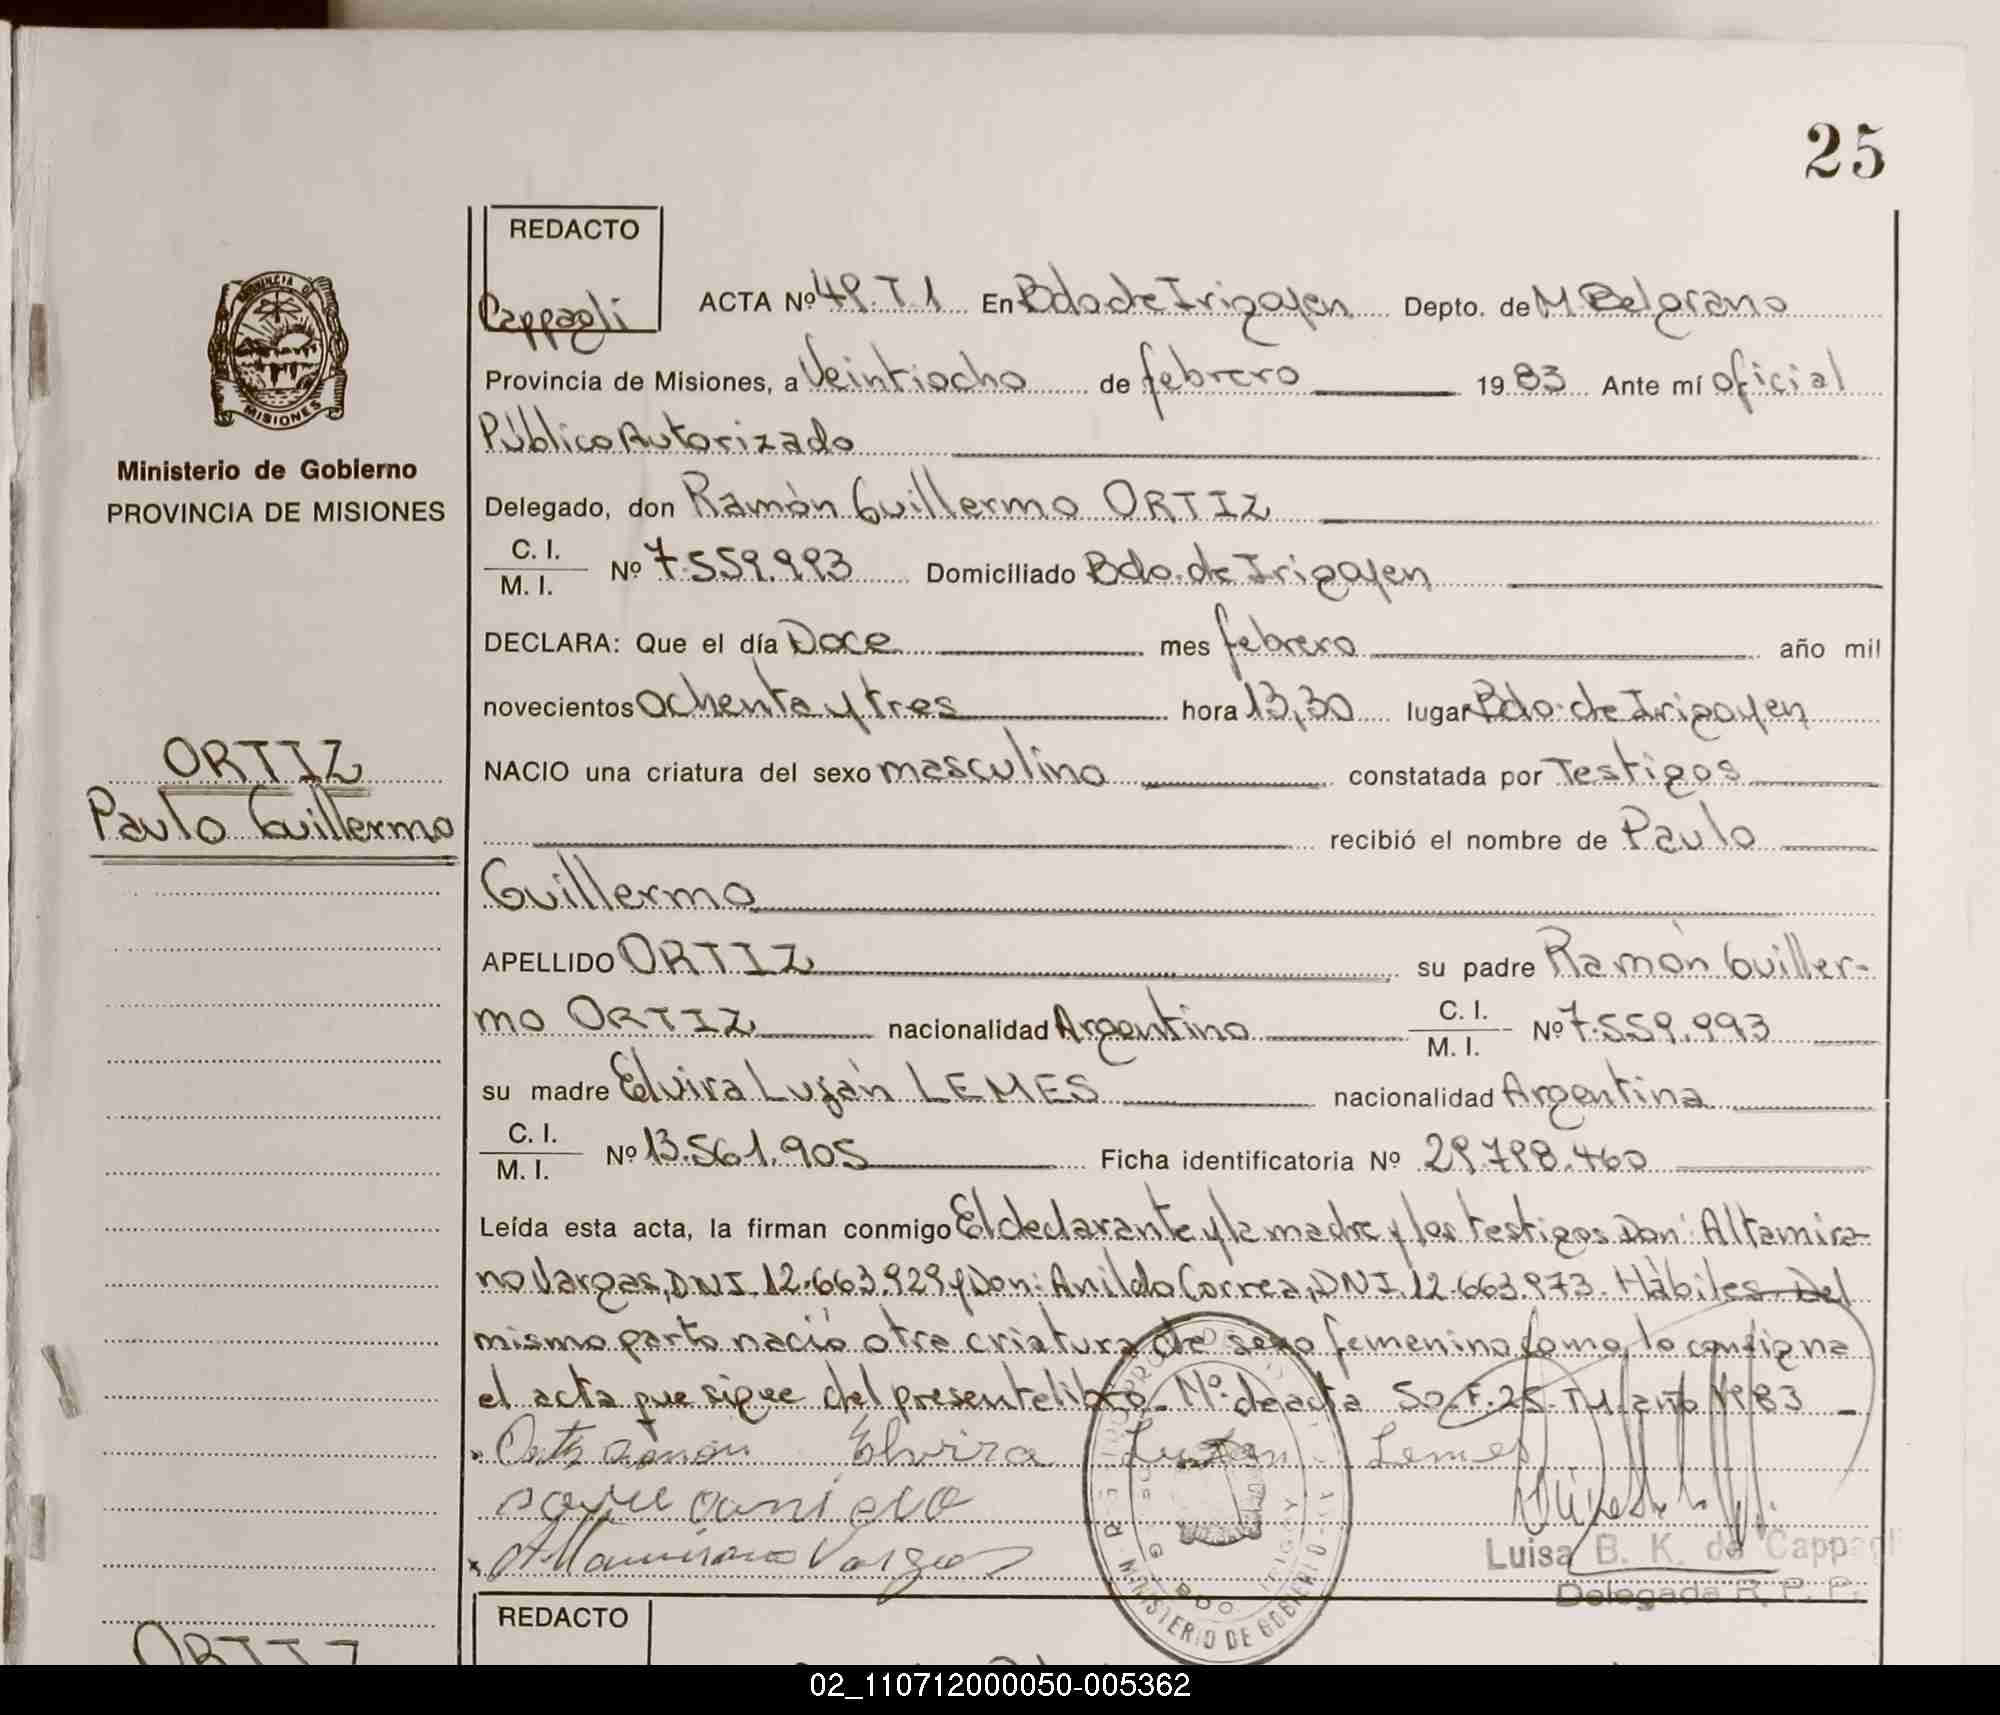 25
REDACTO
Cappagli
ACTA Nº 49.T.1 En Bdo de Irigoyen Depto. de M Belgrano
Provincia de Misiones, a Veintiocho de febrero 1983 Ante mí oficial
Público Autorizado
Ministerio de Gobierno
PROVINCIA DE MISIONES
Delegado, don Ramón Guillermo ORTIZ
C. I.
M. I. Nº 7.559.993 Domiciliado Bdo. de Irigoyen
DECLARA: Que el día Doce mes febrero año mil
novecientos ochenta y tres hora 13,30 lugar Bdo. de Irigoyen
ORTIZ
Paulo Guillermo
NACIO una criatura del sexo masculino constatada por Testigos
recibió el nombre de Paulo
Guillermo
APELLIDO ORTIZ su padre Ramón Guiller-
mo ORTIZ nacionalidad Argentino C. I. M. I. Nº 7.559.993
su madre Elvira Luján LEMES nacionalidad Argentina
C. I.
M. I. Nº 13.561.905 Ficha identificatoria Nº 29.798.460
Leída esta acta, la firman conmigo El declarante y la madre y los testigos Don: Altamira-
no Vargas, DNI. 12.663.929 y Don: Anildo Correa, DNI. 12.663.973. Hábiles- Del
mismo parto nació otra criatura de sexo femenino como lo consigna
el acta que sigue del presente libro. Nº de acta 50.F.25.T.1. año 1983
Elvira Luján Lemes
Altamirano Vargas
Luisa B. K. de Cappagli
Delegada R. P. P.
MINISTERIO DE GOBIERNO
BDO
REDACTO
ORTIZ
02_110712000050-005362